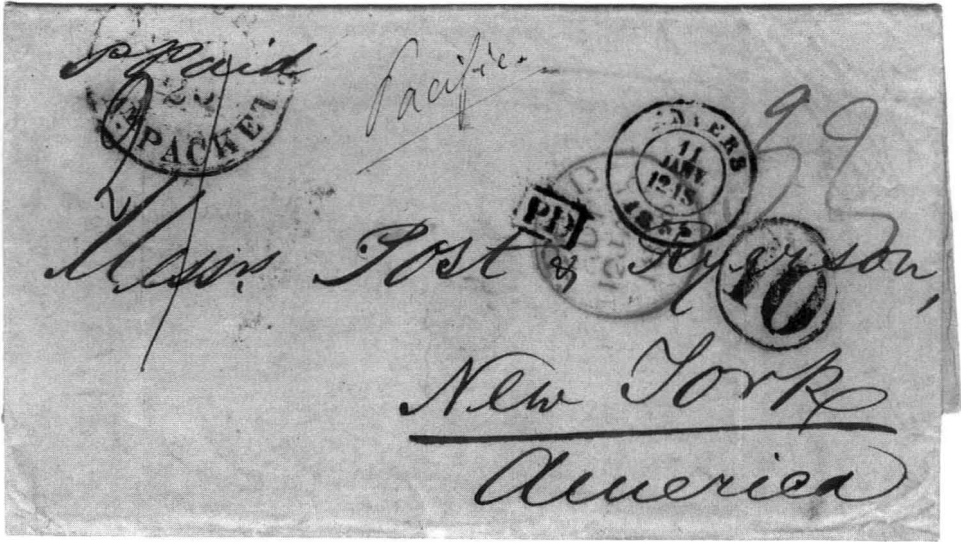 ppaid
23
PACKET
Pacific.
ANVERS
11
JANV.
12-1S
1855
PD
10
Messrs. Post & Ryerson,
New York
America